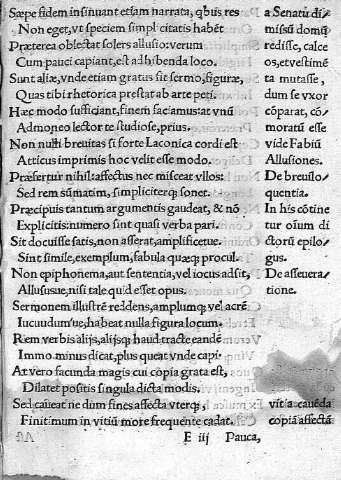 Sæpe fidem insinuant etiam narrata, qbus res
Non eget, vt speciem simplicitatis habēt
Præterea oblectat solers allusio: verum
Cum pauci capiant, est adhibenda loco.
Sunt aliæ, vnde etiam gratus sit sermo, figuræ,
Quas tibi rhetorica prestat ab arte peti.
Hæc modo sufficiant, finem faciamus: at vnū
Admoneo lector te studiose, prius.
Non nulli breuitas si forte Laconica cordi est
Atticus imprimis hoc velit esse modo.
Præsertur nihil: affectus nec misceat vllos:
Sed rem sūmatim, simpliciterq; sonet.
Præcipuis tantum argumentis gaudeat, & nō
Explicitis: numero sunt quasi verba pari.
Sit docuisse satis, non asserat, amplificetue.
Sint simile, exemplum, fabula quæq; procul.
Non epiphonema, aut sententia, vel iocus adsit,
Allususue, nisi tale quid esset opus.
Sermonem illustrē reddens, amplumq; vel acrē
Iucundumue, habeat nulla figura locum.
Rem verbis alijs, alijsq; haud tracte eandē
Immo minus dicat, plus queat vnde capi.
At vero facunda magis cui copia grata est,
Dilatet positis singula dicta modis.
Sed caueat ne dum fines affecta vterq;,
Finitimum in vitiū more frequente cadat.
E iij Pauca,
a Senatu di=
missū domū
redisse, calce
os, et vestimē
ta mutasse,
dum se vxor
cōparat, cō=
moratū esse
vide Fabiū
Allusiones.
De breuilo=
quentia.
In his cōtine
tur oīum di
ctorū epilo=
gus.
De asseuera=
tione.
vitia cauēda
copiā affectā